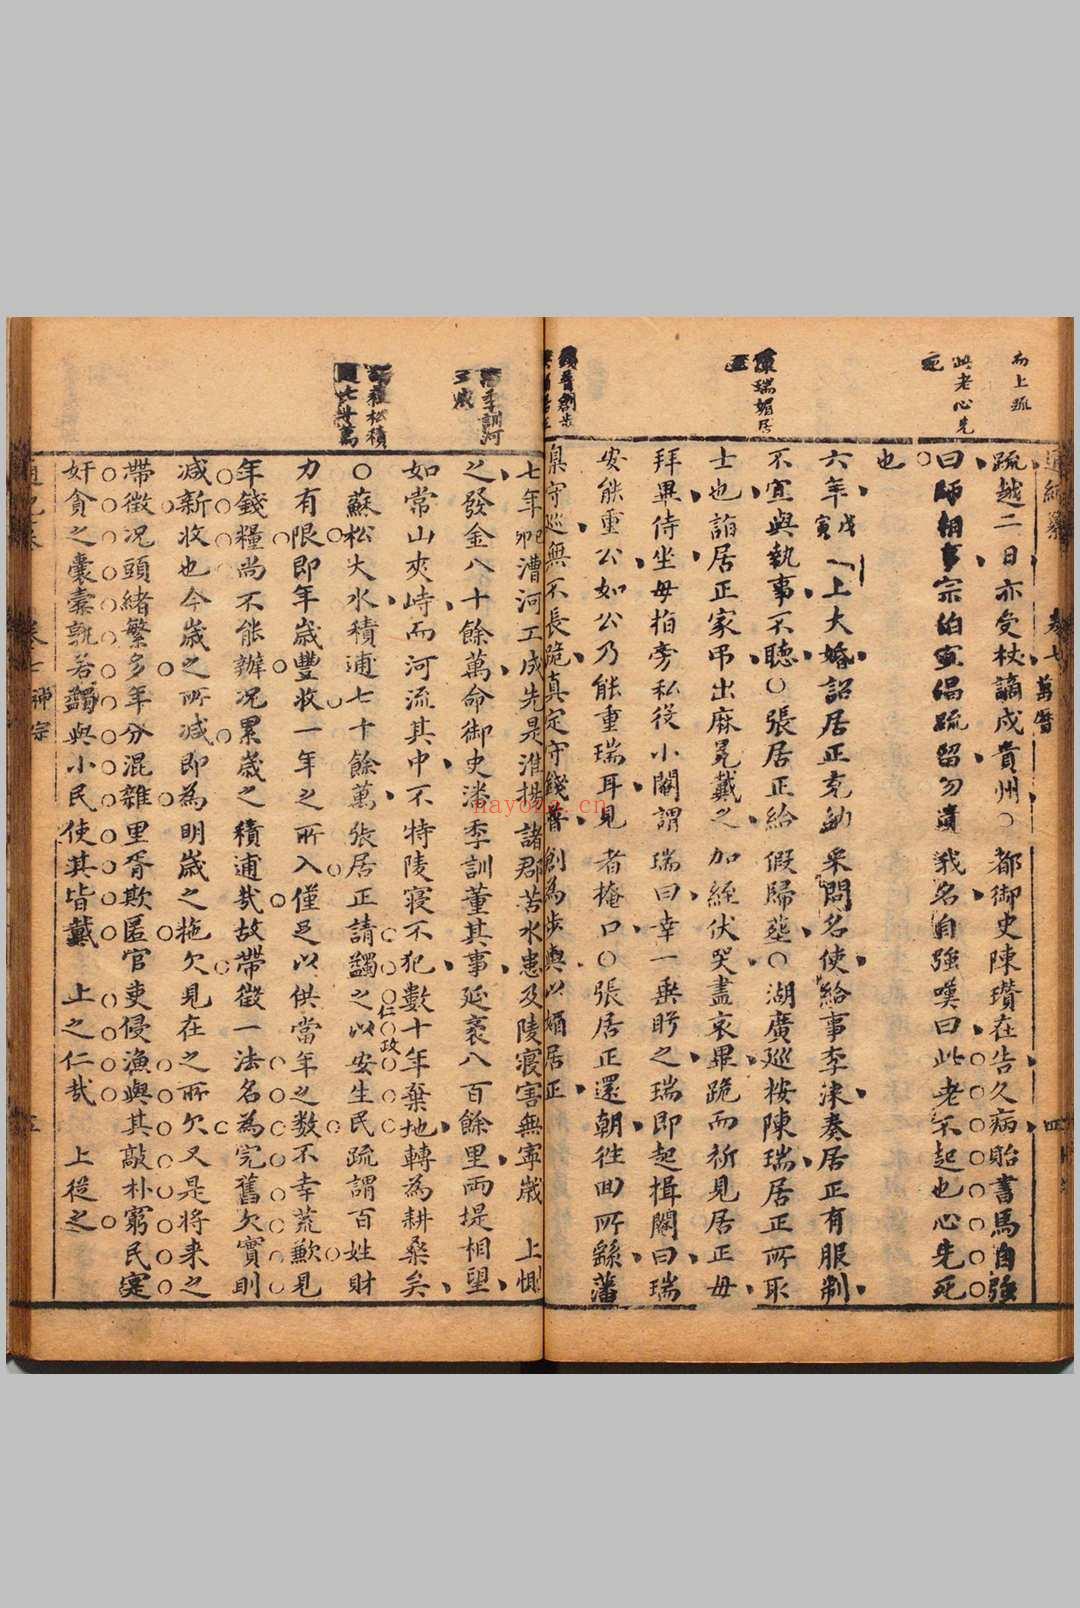 而上疏
此老心先
死
陳瑞媚居
正
錢普創步
輿媚居正
潘季訓河
工成
蘇松積
逋七十萬
疏越二日亦受杖謫戍貴州○都御史陳瓚在告久病貽書馬自強
曰師相事宗伯宜倡疏留勿遺我名自強嘆曰此老不起也心先死
也
六年戊寅上大婚詔居正充納采問名使給事李淶奏居正有服制
不宜與執事不聽○張居正給假歸葬○湖廣巡按陳瑞居正所取
士也詣居正家弔出麻冕戴之加絰伏哭盡哀畢跪而祈見居正母
拜畢侍坐母指旁私役小閹謂瑞曰幸一垂盻之瑞即起揖閹曰瑞
安能重公如公乃能重瑞耳見者掩口○張居正還朝往回所繇藩
臬守巡無不長跪真定守錢普創為步輿以媚居正
七年己卯漕河工成先是淮揚諸郡苦水患及陵寢害無寧歲上惻
之發金八十餘萬命御史潘季訓董其事延袤八百餘里兩堤相望
如常山夾峙而河流其中不特陵寢不犯數十年棄地轉為耕桑矣
○蘇松大水積逋七十餘萬張居正請蠲之以安生民疏謂百姓財
仁政
力有限即年歲豐收一年之所入僅足以供當年之数不幸荒歉見
年錢糧尚不能辦况累歲之積逋哉故帶徵一法名為完舊欠實則
減新收也今歲之所減即為明歲之拖欠見在之所欠又是將来之
帶徵况頭緒繁多年分混雜里胥欺匿官吏侵漁與其敲朴窮民寔
奸貪之囊橐孰若蠲與小民使其皆戴上之仁哉上從之
通紀纂
卷七
萬曆
四
卷七
神宗
nayona.cn